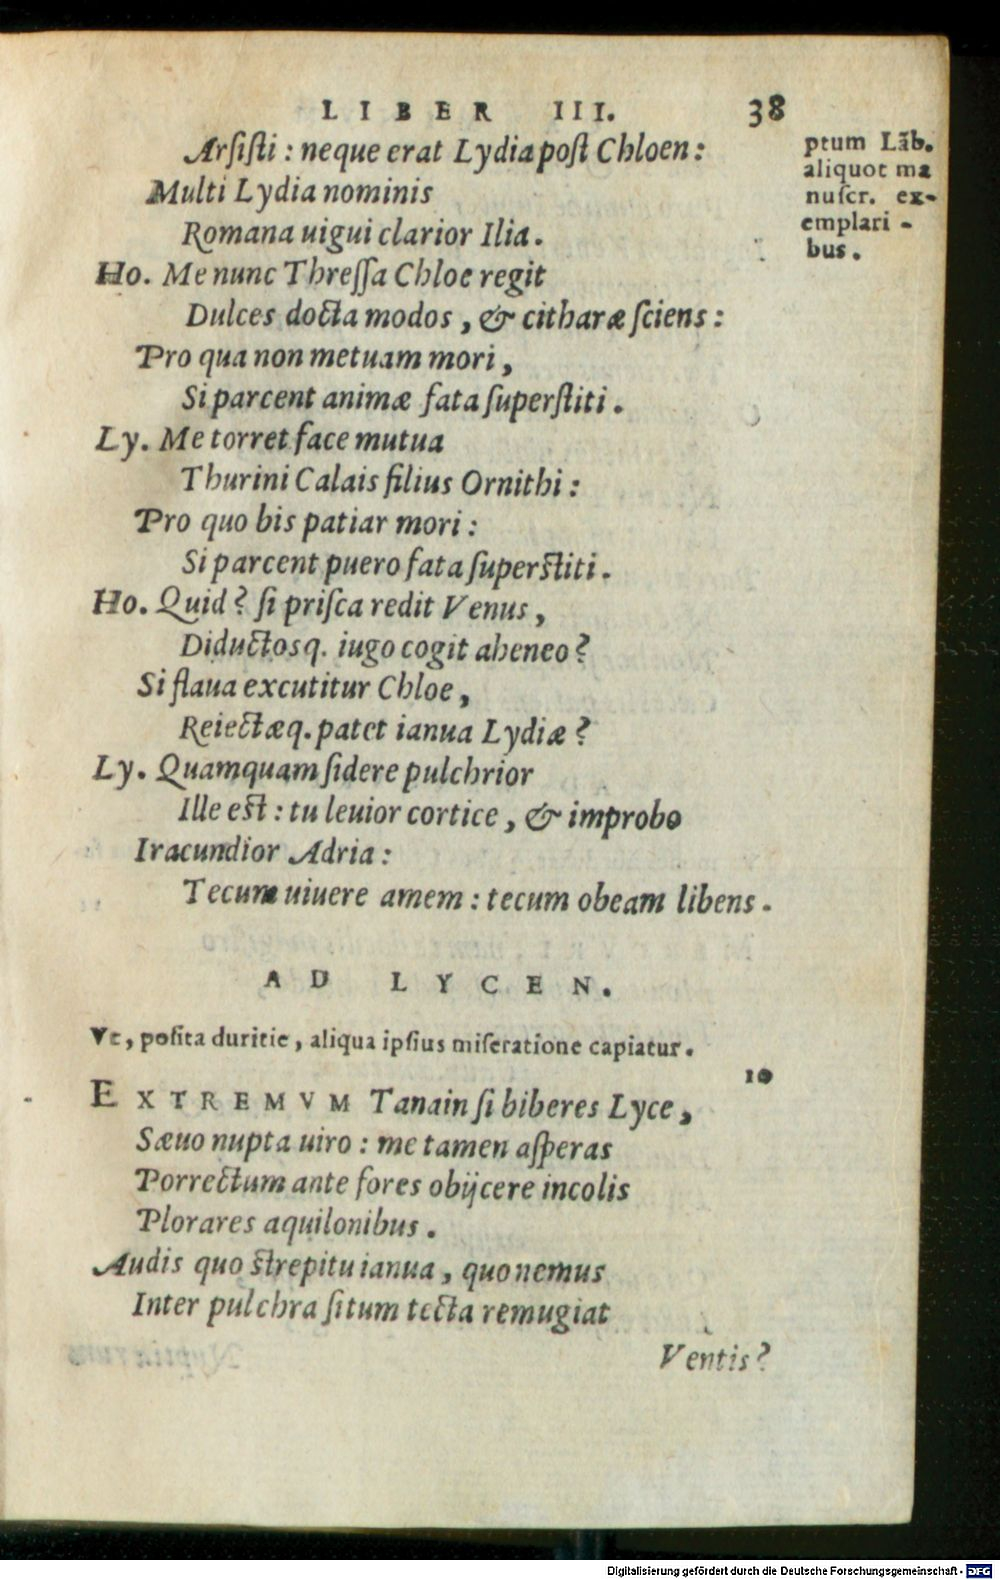 LIBER III. 38
Arſiſti : neque erat Lydia poſt Chloen :
Multi Lydia nominis
Romana uigui clarior Ilia.
Ho. Me nunc Threſſa Chloe regit
Dulces docta modos, & citharæ ſciens :
Pro qua non metuam mori,
Si parcent animæ fata ſuperſtiti.
Ly. Me torret face mutua
Thurini Calais filius Ornithi :
Pro quo bis patiar mori :
Si parcent puero fata ſuperſtiti.
Ho. Quid? ſi priſca redit Venus,
Diductosq. iugo cogit aheneo?
Si flaua excutitur Chloe,
Reiectæq. patet ianua Lydiæ?
Ly. Quamquam ſidere pulchrior
Ille eſt : tu leuior cortice, & improbo
Iracundior Adria :
Tecum uiuere amem : tecum obeam libens.
ptum Lãb.
aliquot ma
nuſcr. ex-
emplari-
bus.
AD LYCEN.
Vt, poſita duritie, aliqua ipſius miſeratione capiatur.
10
EXTREMVM Tanain ſi biberes Lyce,
Sæuo nupta uiro : me tamen aſperas
Porrectum ante fores obijcere incolis
Plorares aquilonibus.
Audis quo ſtrepitu ianua, quo nemus
Inter pulchra ſitum tecta remugiat
Ventis?
Digitalisierung gefördert durch die Deutsche Forschungsgemeinschaft - DFG